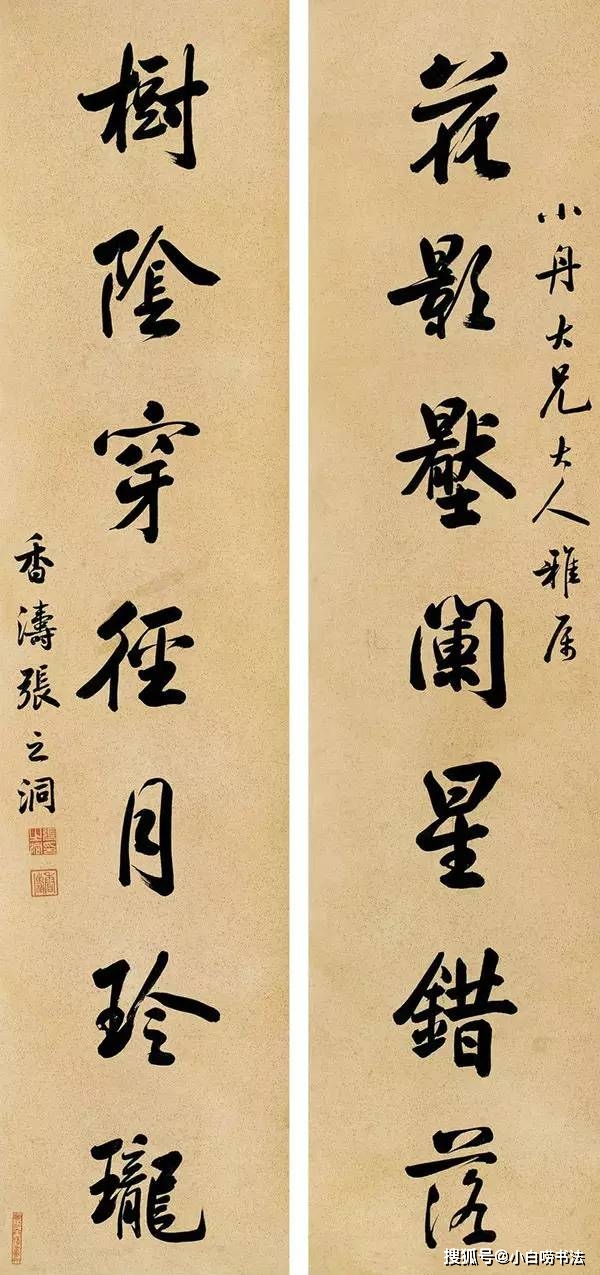 小舟大兄大人雅属
花影壓闌星錯落
樹陰穿徑月玲瓏
香濤張之洞
搜狐号@小白唠书法